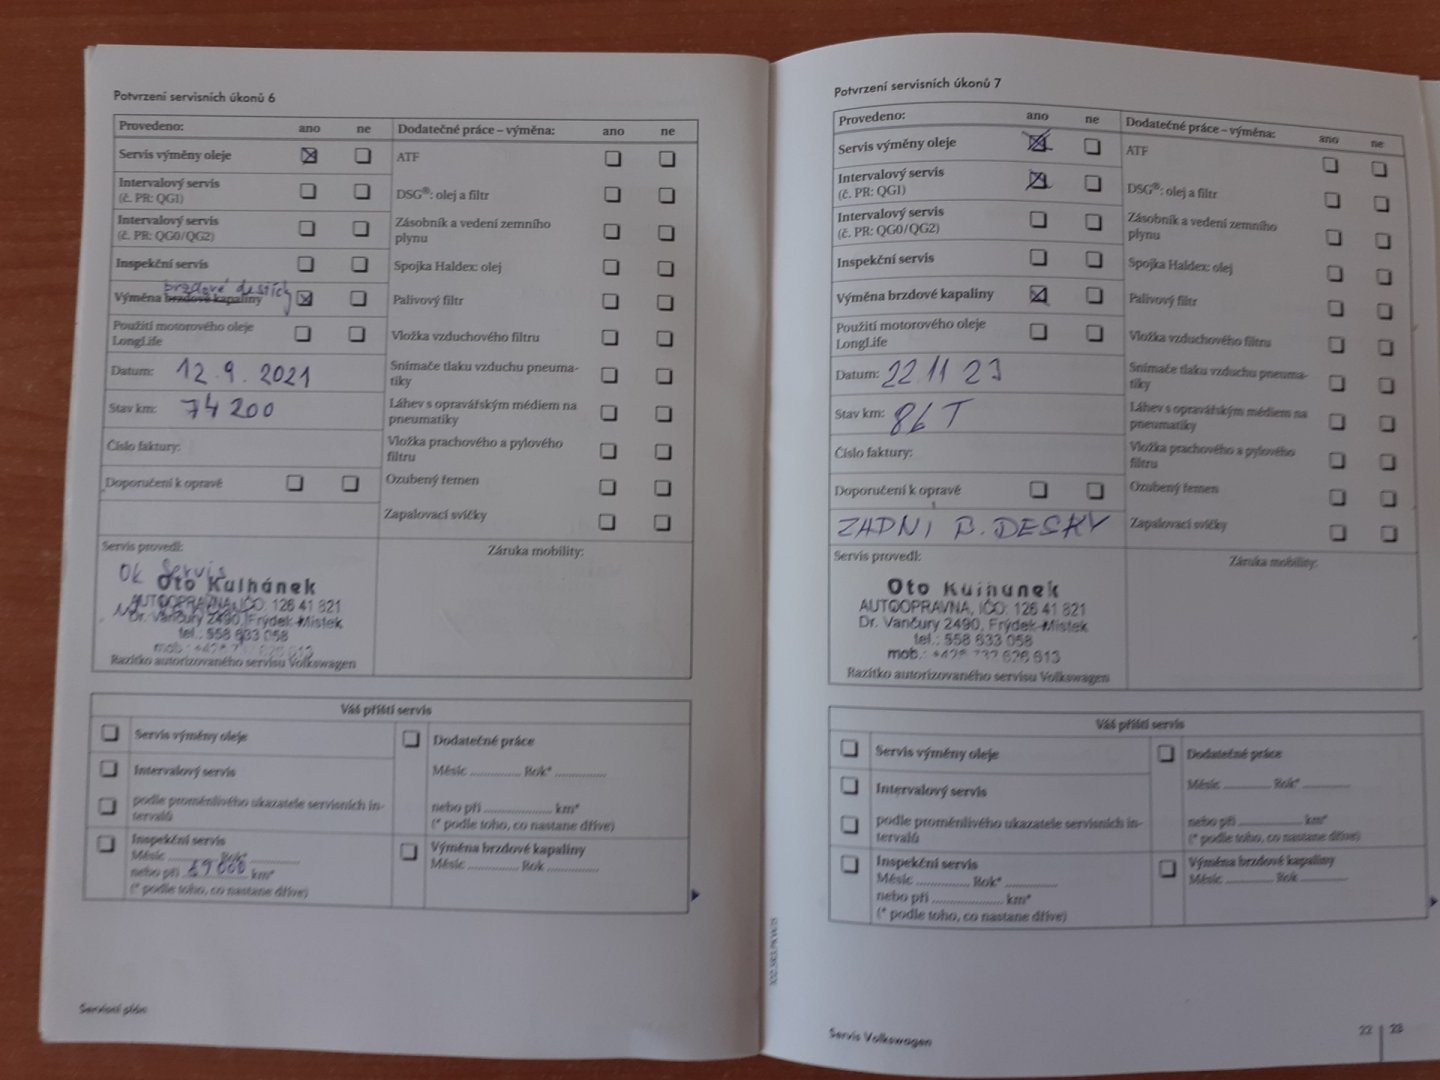 Potvrzení servisních úkonů 6
Provedeno: ano ne
Servis výměny oleje
Intervalový servis
(č. PR: QG1)
Intervalový servis
(č. PR: QG0/QG2)
Inspekční servis
brzdové destičky
Výměna brzdové kapaliny
Použití motorového oleje
LongLife
Datum: 12.9.2021
Stav km: 74 200
Číslo faktury:
Doporučení k opravě
Servis provedl:
Ok Servis
Oto Kulhánek
AUTOOPRAVNA, IČO: 126 41 821
Dr. Vančury 2490, Frýdek-Místek
tel.: 558 633 058
mob.: +420 626 613
Razítko autorizovaného servisu Volkswagen
Dodatečné práce – výměna: ano ne
ATF
DSG®: olej a filtr
Zásobník a vedení zemního
plynu
Spojka Haldex: olej
Palivový filtr
Vložka vzduchového filtru
Snímače tlaku vzduchu pneuma-
tiky
Láhev s opravářským médiem na
pneumatiky
Vložka prachového a pylového
filtru
Ozubený řemen
Zapalovací svíčky
Záruka mobility:
Váš příští servis
Servis výměny oleje
Intervalový servis
podle proměnlivého ukazatele servisních in-
tervalů
Inspekční servis
Měsíc .............. Rok* ..............
nebo při 89 000 km*
(* podle toho, co nastane dříve)
Dodatečné práce
Měsíc .............. Rok* ..............
nebo při .................. km*
(* podle toho, co nastane dříve)
Výměna brzdové kapaliny
Měsíc .............. Rok ..............
Servisní plán
Potvrzení servisních úkonů 7
Provedeno: ano ne
Servis výměny oleje
Intervalový servis
(č. PR: QG1)
Intervalový servis
(č. PR: QG0/QG2)
Inspekční servis
Výměna brzdové kapaliny
Použití motorového oleje
LongLife
Datum: 22.11 23
Stav km: 86 T
Číslo faktury:
Doporučení k opravě
ZADNI B. DESKY
Servis provedl:
Oto Kulhánek
AUTOOPRAVNA, IČO: 126 41 821
Dr. Vančury 2490, Frýdek-Místek
tel.: 558 633 058
mob.: +420 737 626 613
Razítko autorizovaného servisu Volkswagen
Dodatečné práce – výměna: ano ne
ATF
DSG®: olej a filtr
Zásobník a vedení zemního
plynu
Spojka Haldex: olej
Palivový filtr
Vložka vzduchového filtru
Snímače tlaku vzduchu pneuma-
tiky
Láhev s opravářským médiem na
pneumatiky
Vložka prachového a pylového
filtru
Ozubený řemen
Zapalovací svíčky
Záruka mobility:
Váš příští servis
Servis výměny oleje
Intervalový servis
podle proměnlivého ukazatele servisních in-
tervalů
Inspekční servis
Měsíc .............. Rok* ..............
nebo při .................. km*
(* podle toho, co nastane dříve)
Dodatečné práce
Měsíc .............. Rok* ..............
nebo při .................. km*
(* podle toho, co nastane dříve)
Výměna brzdové kapaliny
Měsíc .............. Rok ..............
Servis Volkswagen
22 | 23